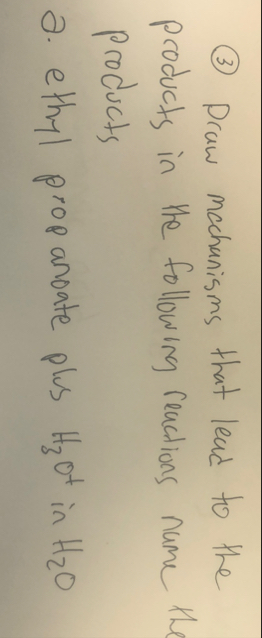 ③ Draw mechanisms that lead to the
products in the following reactions name the
products
a. ethyl propanoate plus H₃O⁺ in H₂O